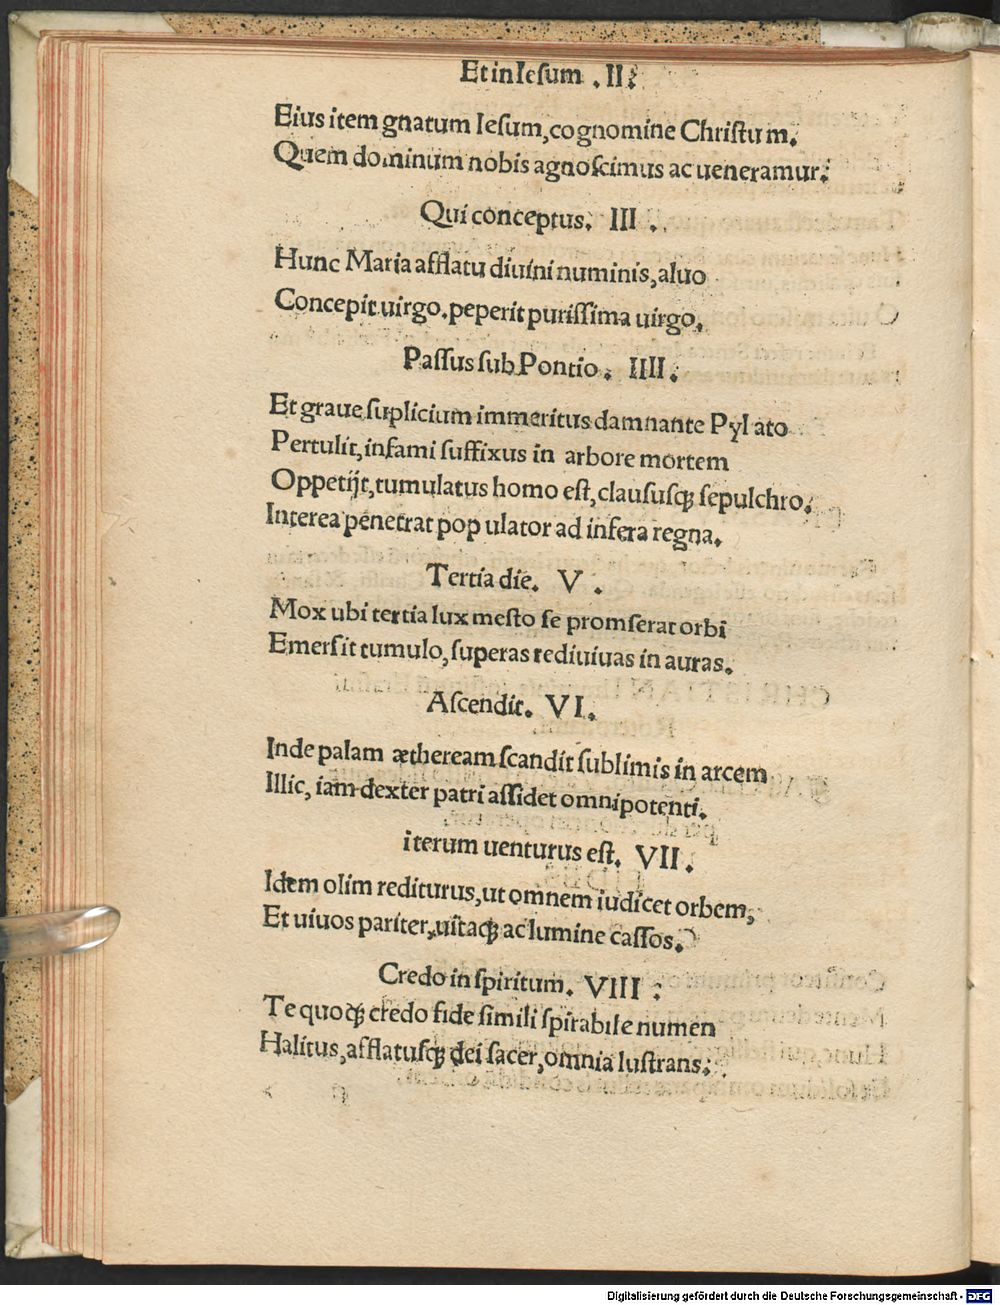 Et in Iesum .II:
Eius item gnatum Iesum, cognomine Christum.
Quem dominum nobis agnoscimus ac ueneramur:
Qui conceptus. III .
Hunc Maria afflatu diuini numinis, aluo
Concepit uirgo. peperit purissima uirgo.
Passus sub Pontio. IIII.
Et graue suplicium immeritus damnante Pylato
Pertulit, infami suffixus in arbore mortem
Oppetijt, tumulatus homo est, claususqꝫ sepulchro.
Interea penetrat populator ad infera regna.
Tertia die. V .
Mox ubi tertia lux mesto se promserat orbi
Emersit tumulo, superas rediuiuas in auras.
Ascendit. VI.
Inde palam ætheream scandit sublimis in arcem
Illic, iam dexter patri assidet omnipotenti.
iterum uenturus est. VII .
Idem olim rediturus, ut omnem iudicet orbem,
Et uiuos pariter, uitaqꝫ ac lumine cassos.
Credo in spiritum. VIII :
Te quoqꝫ credo fide simili spirabile numen
Halitus, afflatusqꝫ dei sacer, omnia lustrans:
Digitalisierung gefördert durch die Deutsche Forschungsgemeinschaft - DFG